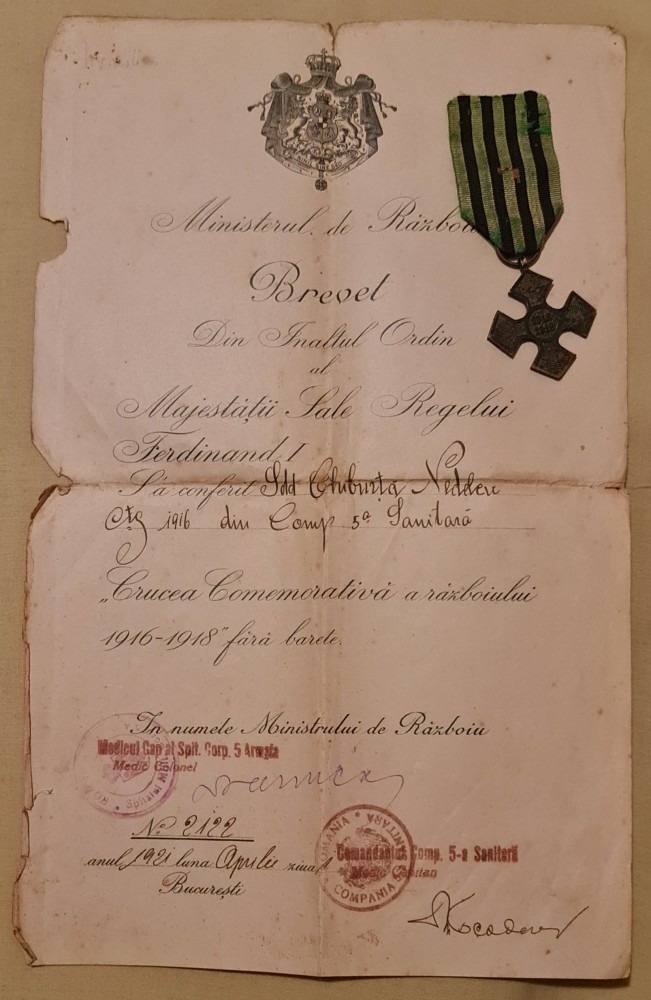 Ministerul de Războiu
Brevet
Din Inaltul Ordin
al
Majestății Sale Regelui
Ferdinand I
S'a conferit Sold Nedelcu
Ctg 1916 din Comp 5ª Sanitară
„Crucea Comemorativă a războiului
1916-1918” fără barete.
In numele Ministrului de Războiu
Medicul Cap al Spit. Corp. 5 Armata
Medic Colonel
No 2122
anul 1921 luna Aprilie ziua 1
București
ROMANIA * COMPANIA SANITARA
Comandantul Comp. 5-a Sanitară
Medic Capitan